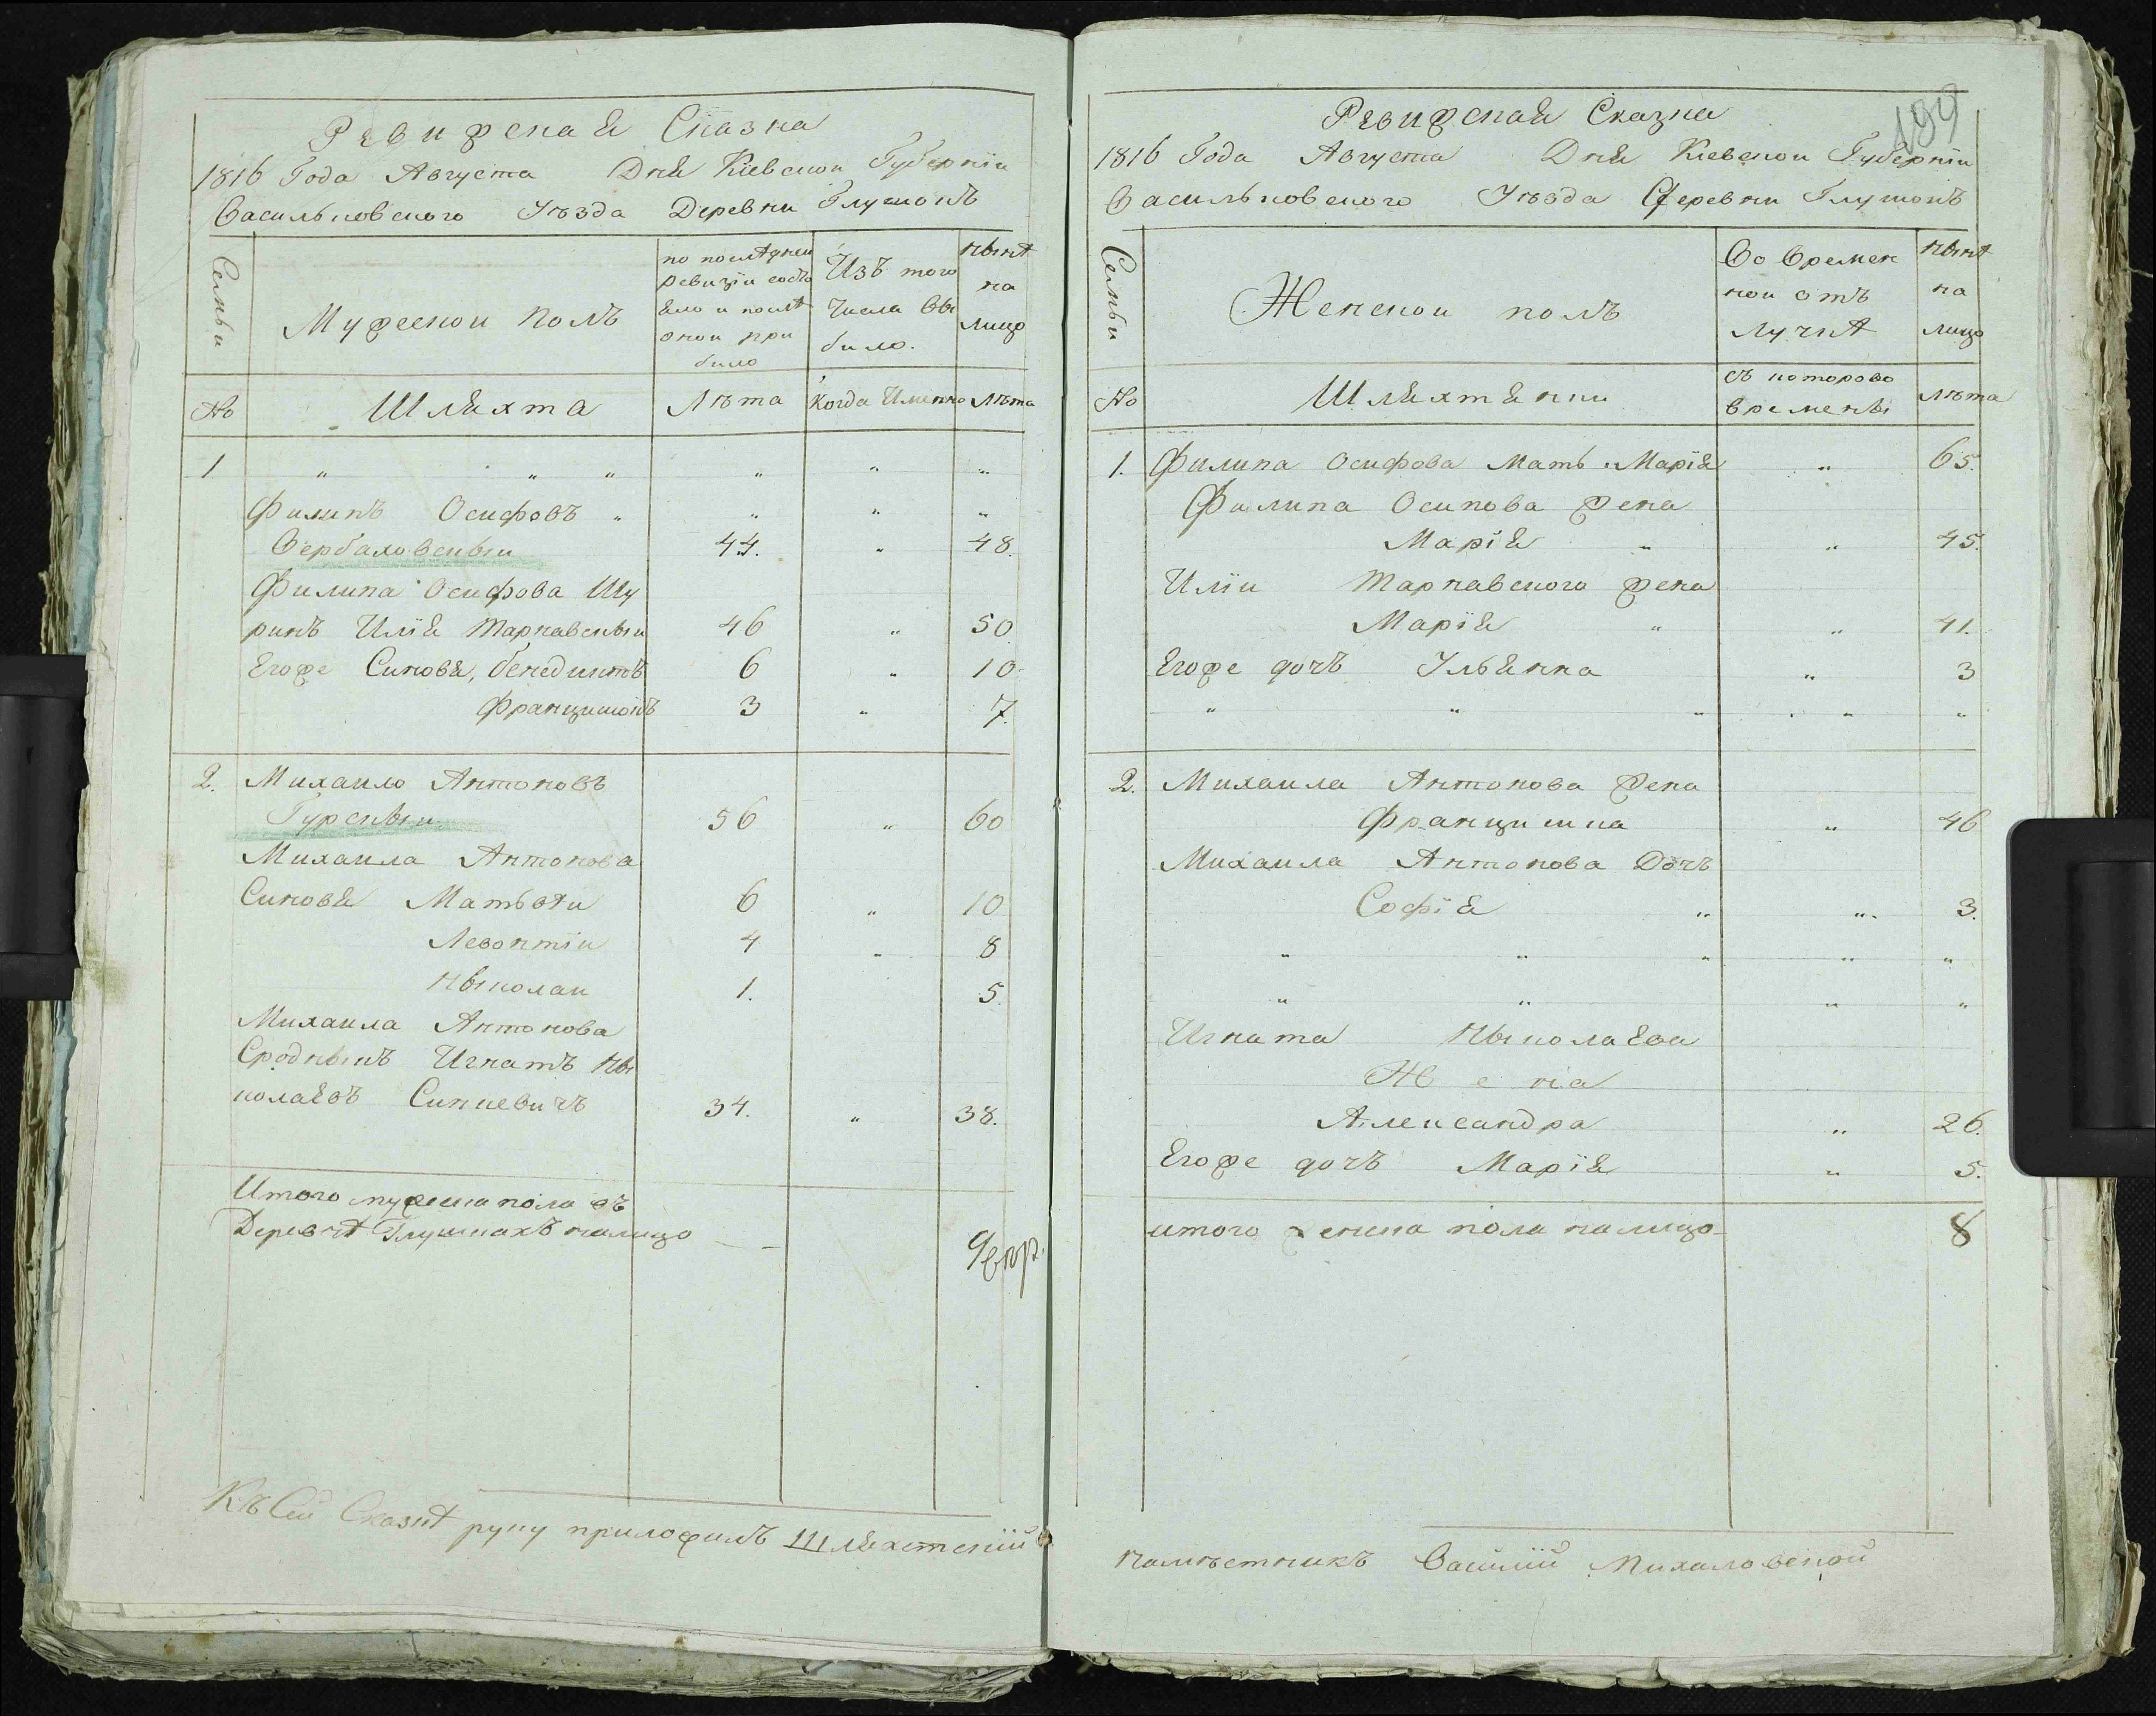 Ревизская Сказка
1816 Года Августа Дня Кіевскои Губерніи
Васильковского Уѣзда Деревни Глушокъ
Семьи
Мужескои полъ
по послѣднеи
ревизіи состо
яло и послѣ
онои при
было
Изъ того
числа вы
было.
нынѣ
на
лицо
№
Шляхта
Лѣта
Когда Именно
лѣта
1 „ „ „ „ „ „
Филипъ Осифовъ „ „ „ „
Вербаховскыи 44. „ 48.
Филипа Осифова Шу
ринъ Илія Тарнавскыи 46 „ 50
Егоже Синовя, бенедиктъ 6 „ 10
Францишокъ 3 „ 7.
2. Михаило Антоновъ
Гурскыи 56 „ 60
Михаила Антонова
Синовя Матьвѣи 6 „ 10
Левонтіи 4 „ 8
Ныколаи 1. 5.
Михаила Антонова
Сродныкъ Игнатъ Ны
колаявъ Синкевичъ 34. „ 38.
Итого мужеска пола въ
Деревнѣ Глушкахъ налицо — — 9
Къ Сей Сказкѣ руку приложилъ Шляхетскій
199
Ревизская Сказка
1816 Года Августа Дня Кіевскои Губерніи
Васильковского Уѣзда Деревни Глушокъ
Семьи
Женскои полъ
Во времен
нои отъ
лучкѣ
нынѣ
на
лицо
№
Шляхтянки
съ которово
времены
лѣта
1. Филипа Осифова Мать Марія „ 65.
Филипа Осипова жена
Марія „ „ 45.
Иліи Тарнавского жена
Марія „ „ 41.
Егоже дочъ Ульянна „ 3
„ „ „ „ „
2. Михаила Антонова жена
Францишка „ 46
Михаила Антонова Дочъ
Софія „ „ 3.
„ „ „ „ „
„ „ „ „
Игната Ныколаява
Жена
Александра „ 26.
Егоже дочъ Марія „ 5.
итого женска пола налицо 8
намѣстникъ Василій Михаловской